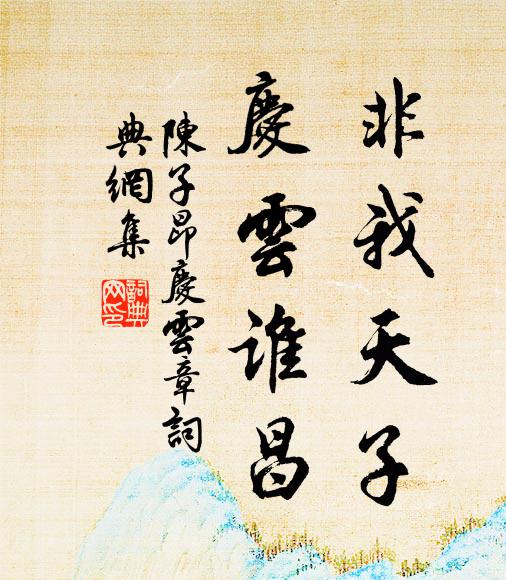 非我天子
慶雲誰昌
陳子昂慶雲章詞
典網集
詞典
网印